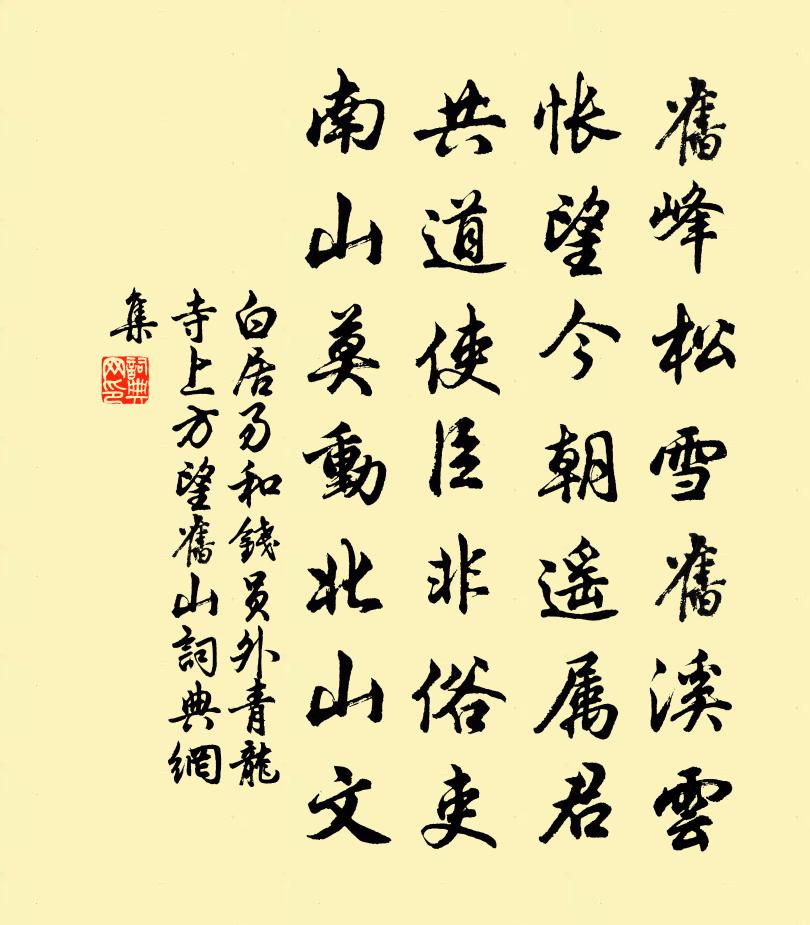 舊峰松雪舊溪雲
悵望今朝遥属君
共道使臣非俗吏
南山莫動北山文
白居易和錢員外青龍
寺上方望舊山詞典網
集
詞典
网印